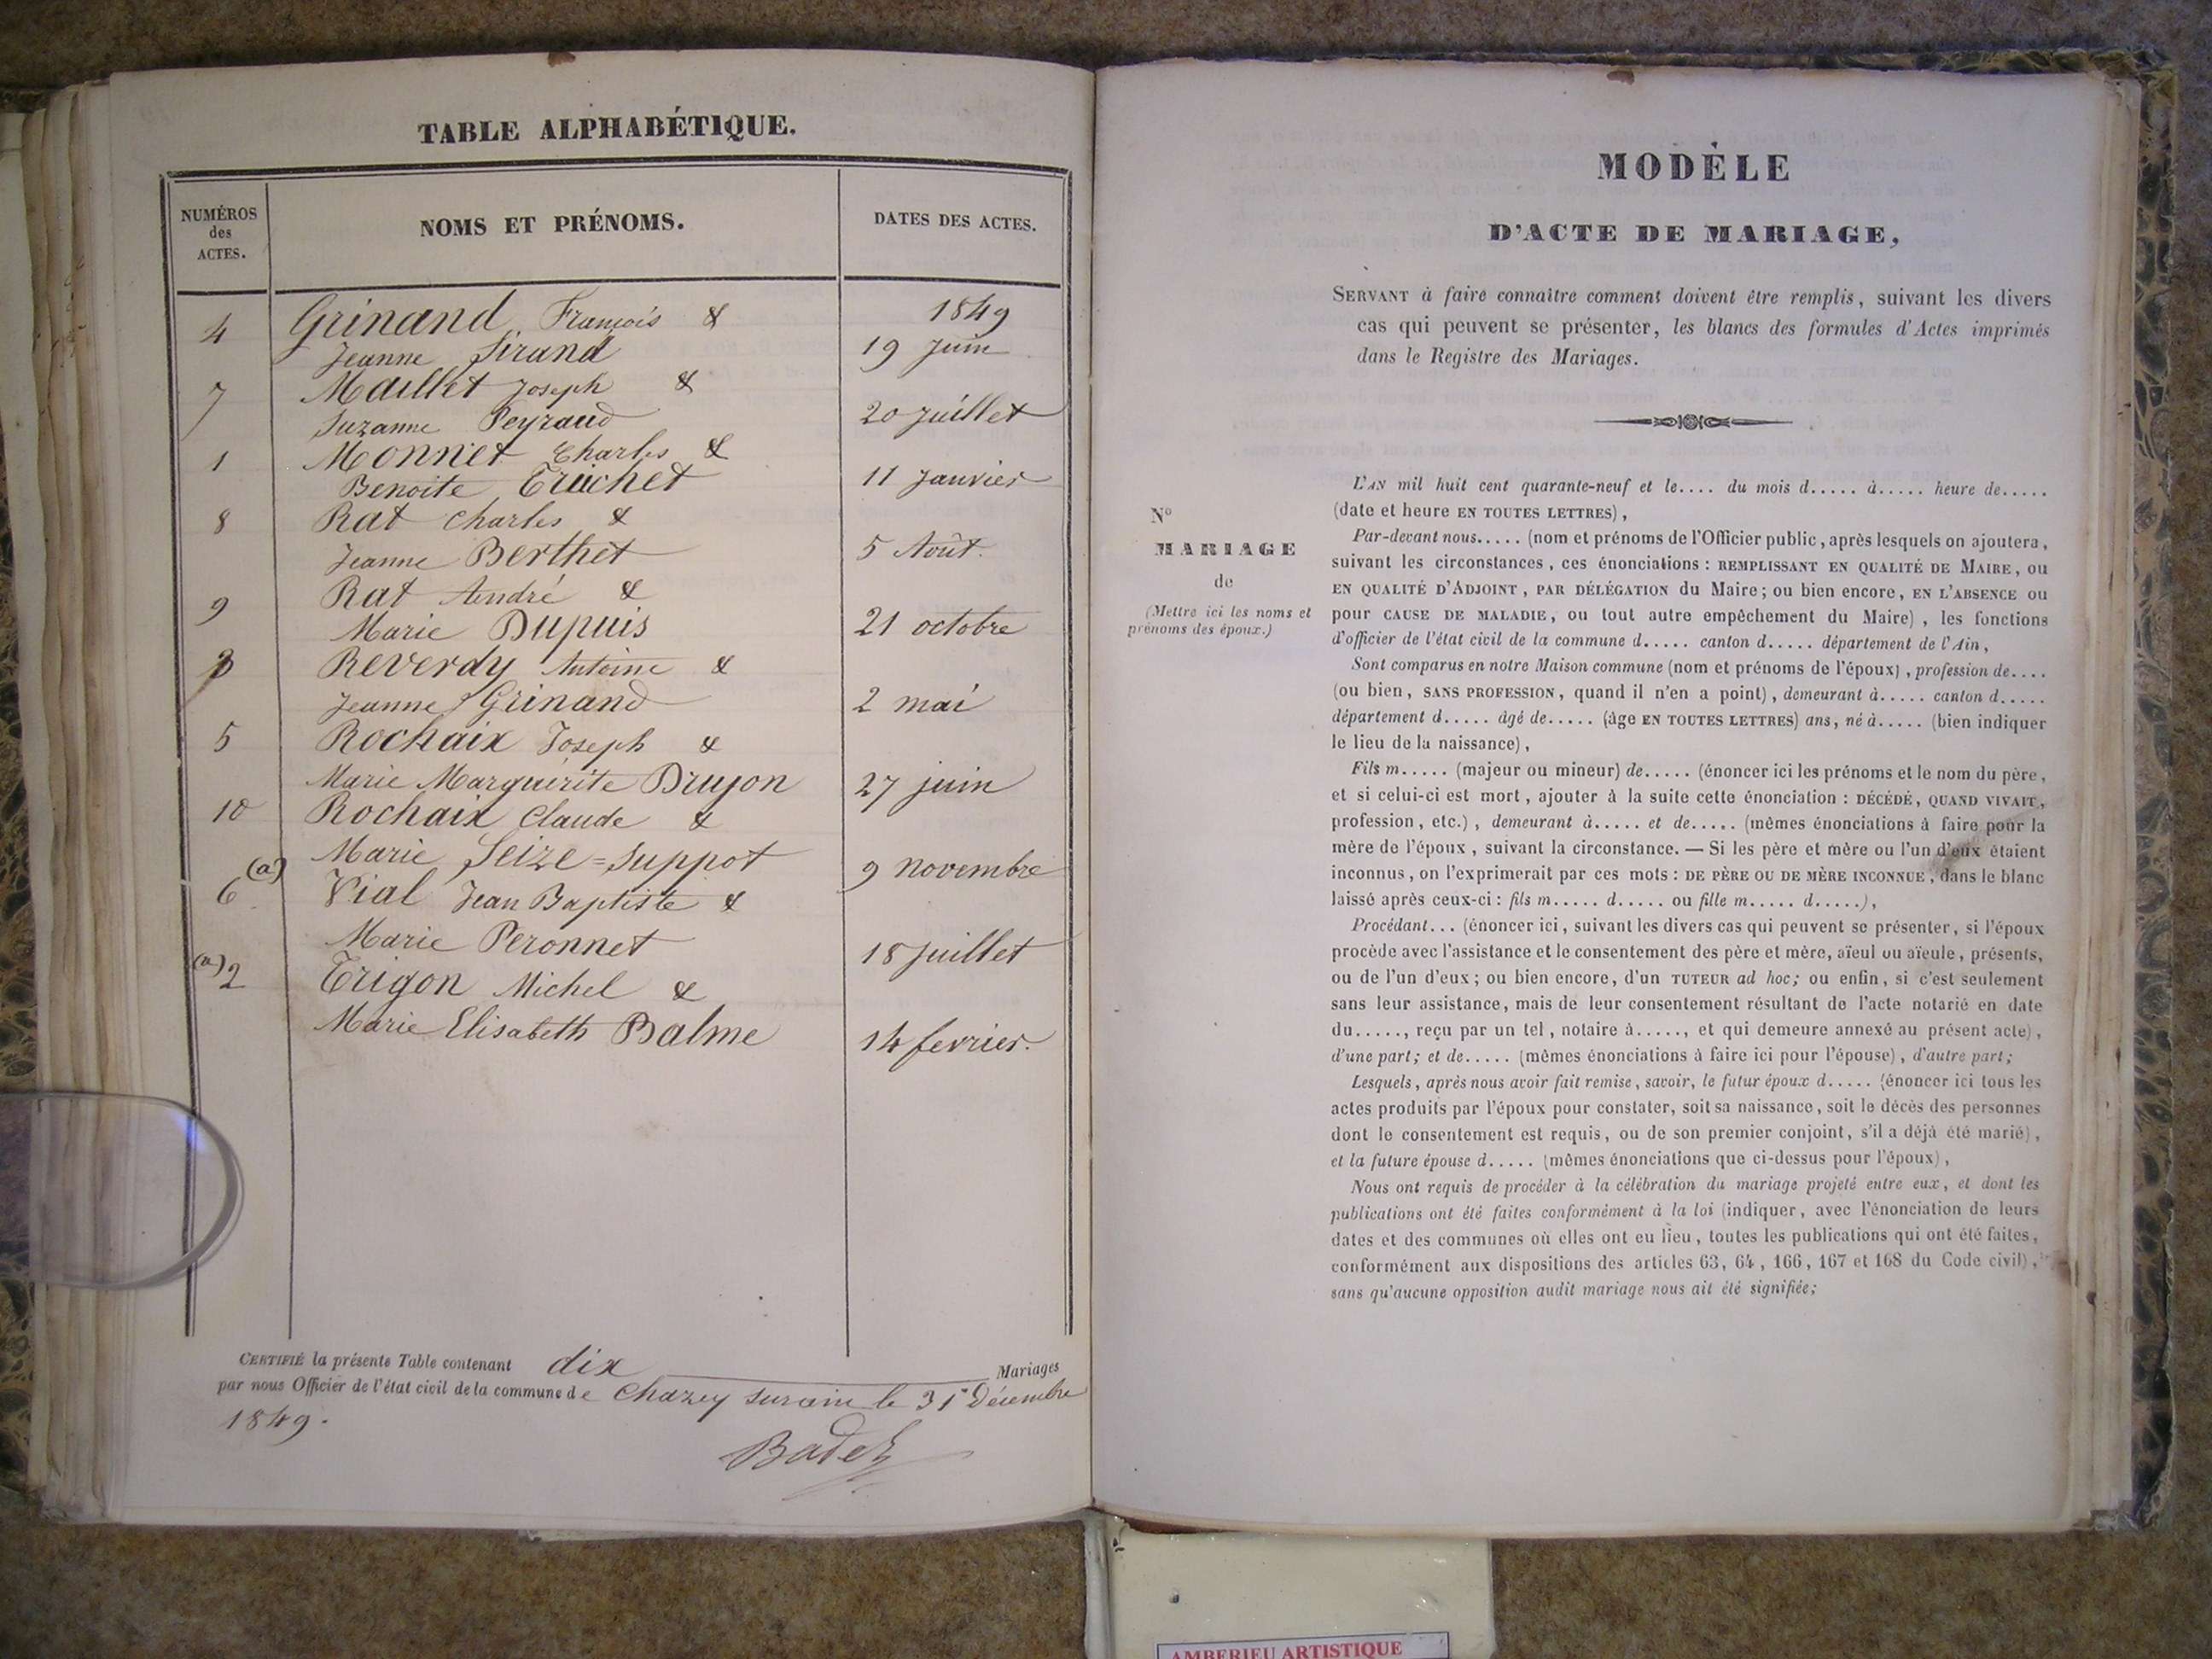 TABLE ALPHABÉTIQUE.
NUMÉROS
des
ACTES.
NOMS ET PRÉNOMS.
DATES DES ACTES.
1849
4 Grinand François &
Jeanne Sirand 19 Juin
7 Maillet Joseph &
Suzanne Peyraud 20 Juillet
1 Monnet Charles &
Benoite Truchet 11 Janvier
8 Rat Charles &
Jeanne Berthet 5 Août.
9 Rat André &
Marie Dupuis 21 octobre
3 Reverdy Antoine &
Jeanne Grinand 2 mai
5 Rochaix Joseph &
Marie Marguérite Drujon 27 juin
10 Rochaix Claude &
Marie Seize=Suppot 9 novembre
(a)
6 Vial Jean Baptiste &
Marie Peronnet 18 Juillet
(a) 2 Trigon Michel &
Marie Elisabeth Balme 14 fevrier.
CERTIFIÉ la présente Table contenant dix Mariages
par nous Officier de l'état civil de la commune de Chazey sur ain le 31 Décembre
1849.
MODÈLE
D'ACTE DE MARIAGE,
SERVANT à faire connaître comment doivent être remplis, suivant les divers
cas qui peuvent se présenter, les blancs des formules d'Actes imprimés
dans le Registre des Mariages.
No
MARIAGE
de
(Mettre ici les noms et
prénoms des époux.)
L'AN mil huit cent quarante-neuf et le.... du mois d..... à..... heure de.....
(date et heure EN TOUTES LETTRES),
Par-devant nous..... (nom et prénoms de l'Officier public, après lesquels on ajoutera,
suivant les circonstances, ces énonciations : REMPLISSANT EN QUALITÉ DE MAIRE, ou
EN QUALITÉ D'ADJOINT, PAR DÉLÉGATION du Maire; ou bien encore, EN L'ABSENCE ou
pour CAUSE DE MALADIE, ou tout autre empêchement du Maire), les fonctions
d'officier de l'état civil de la commune d..... canton d..... département de l'Ain,
Sont comparus en notre Maison commune (nom et prénoms de l'époux), profession de....
(ou bien, SANS PROFESSION, quand il n'en a point), demeurant à..... canton d.....
département d..... âgé de..... (âge EN TOUTES LETTRES) ans, né à..... (bien indiquer
le lieu de la naissance),
Fils m..... (majeur ou mineur) de..... (énoncer ici les prénoms et le nom du père,
et si celui-ci est mort, ajouter à la suite cette énonciation : DÉCÉDÉ, QUAND VIVAIT,
profession, etc.), demeurant à..... et de..... (mêmes énonciations à faire pour la
mère de l'époux, suivant la circonstance. — Si les père et mère ou l'un d'eux étaient
inconnus, on l'exprimerait par ces mots : DE PÈRE OU DE MÈRE INCONNUE, dans le blanc
laissé après ceux-ci : fils m..... d..... ou fille m..... d.....),
Procédant... (énoncer ici, suivant les divers cas qui peuvent se présenter, si l'époux
procède avec l'assistance et le consentement des père et mère, aïeul ou aïeule, présents,
ou de l'un d'eux; ou bien encore, d'un TUTEUR ad hoc; ou enfin, si c'est seulement
sans leur assistance, mais de leur consentement résultant de l'acte notarié en date
du....., reçu par un tel, notaire à....., et qui demeure annexé au présent acte),
d'une part; et de..... (mêmes énonciations à faire ici pour l'épouse), d'autre part;
Lesquels, après nous avoir fait remise, savoir, le futur époux d..... (énoncer ici tous les
actes produits par l'époux pour constater, soit sa naissance, soit le décès des personnes
dont le consentement est requis, ou de son premier conjoint, s'il a déjà été marié),
et la future épouse d..... (mêmes énonciations que ci-dessus pour l'époux),
Nous ont requis de procéder à la célébration du mariage projeté entre eux, et dont les
publications ont été faites conformément à la loi (indiquer, avec l'énonciation de leurs
dates et des communes où elles ont eu lieu, toutes les publications qui ont été faites,
conformément aux dispositions des articles 63, 64, 166, 167 et 168 du Code civil),
sans qu'aucune opposition audit mariage nous ait été signifiée;
AMBERIEU ARTISTIQUE